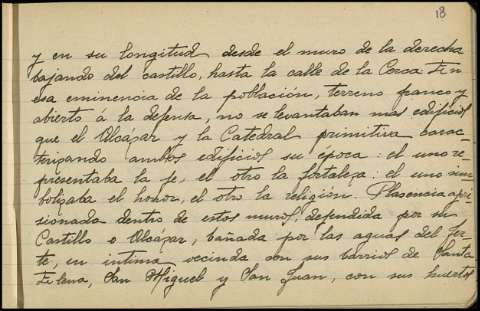 18
y en su longitud desde el muro de la derecha
bajando del castillo, hasta la calle de la Coroa. En
esa eminencia de la población, terreno franco y
abierto a la defensa, no se levantaban mas edificios
que el Alcázar y la Catedral primitiva carac-
terizando ambos edificios su época: el uno re-
presentaba la fe, el otro la fortaleza: el uno sim
bolizaba el honor, el otro la religión. Plasencia apri
sionada dentro de estos muros, defendida por su
Castillo o Alcázar, bañada por las aguas del Jer-
te, en intima vecinda con sus barrios de Santa
Elena, San Miguel y San Juan, con sus huertos